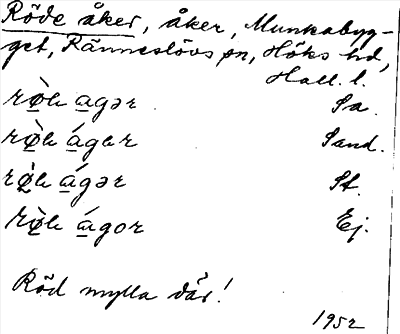 Röde åker, åker, Munkabyg-
get, Ränneslövs sn, Höks hd,
Hall. l.
rø̀da ágər Sa.
rø̀da ágər Sand.
rø̀da ágər St.
rø̀da ágor Ej.
Röd mylla där!
1952